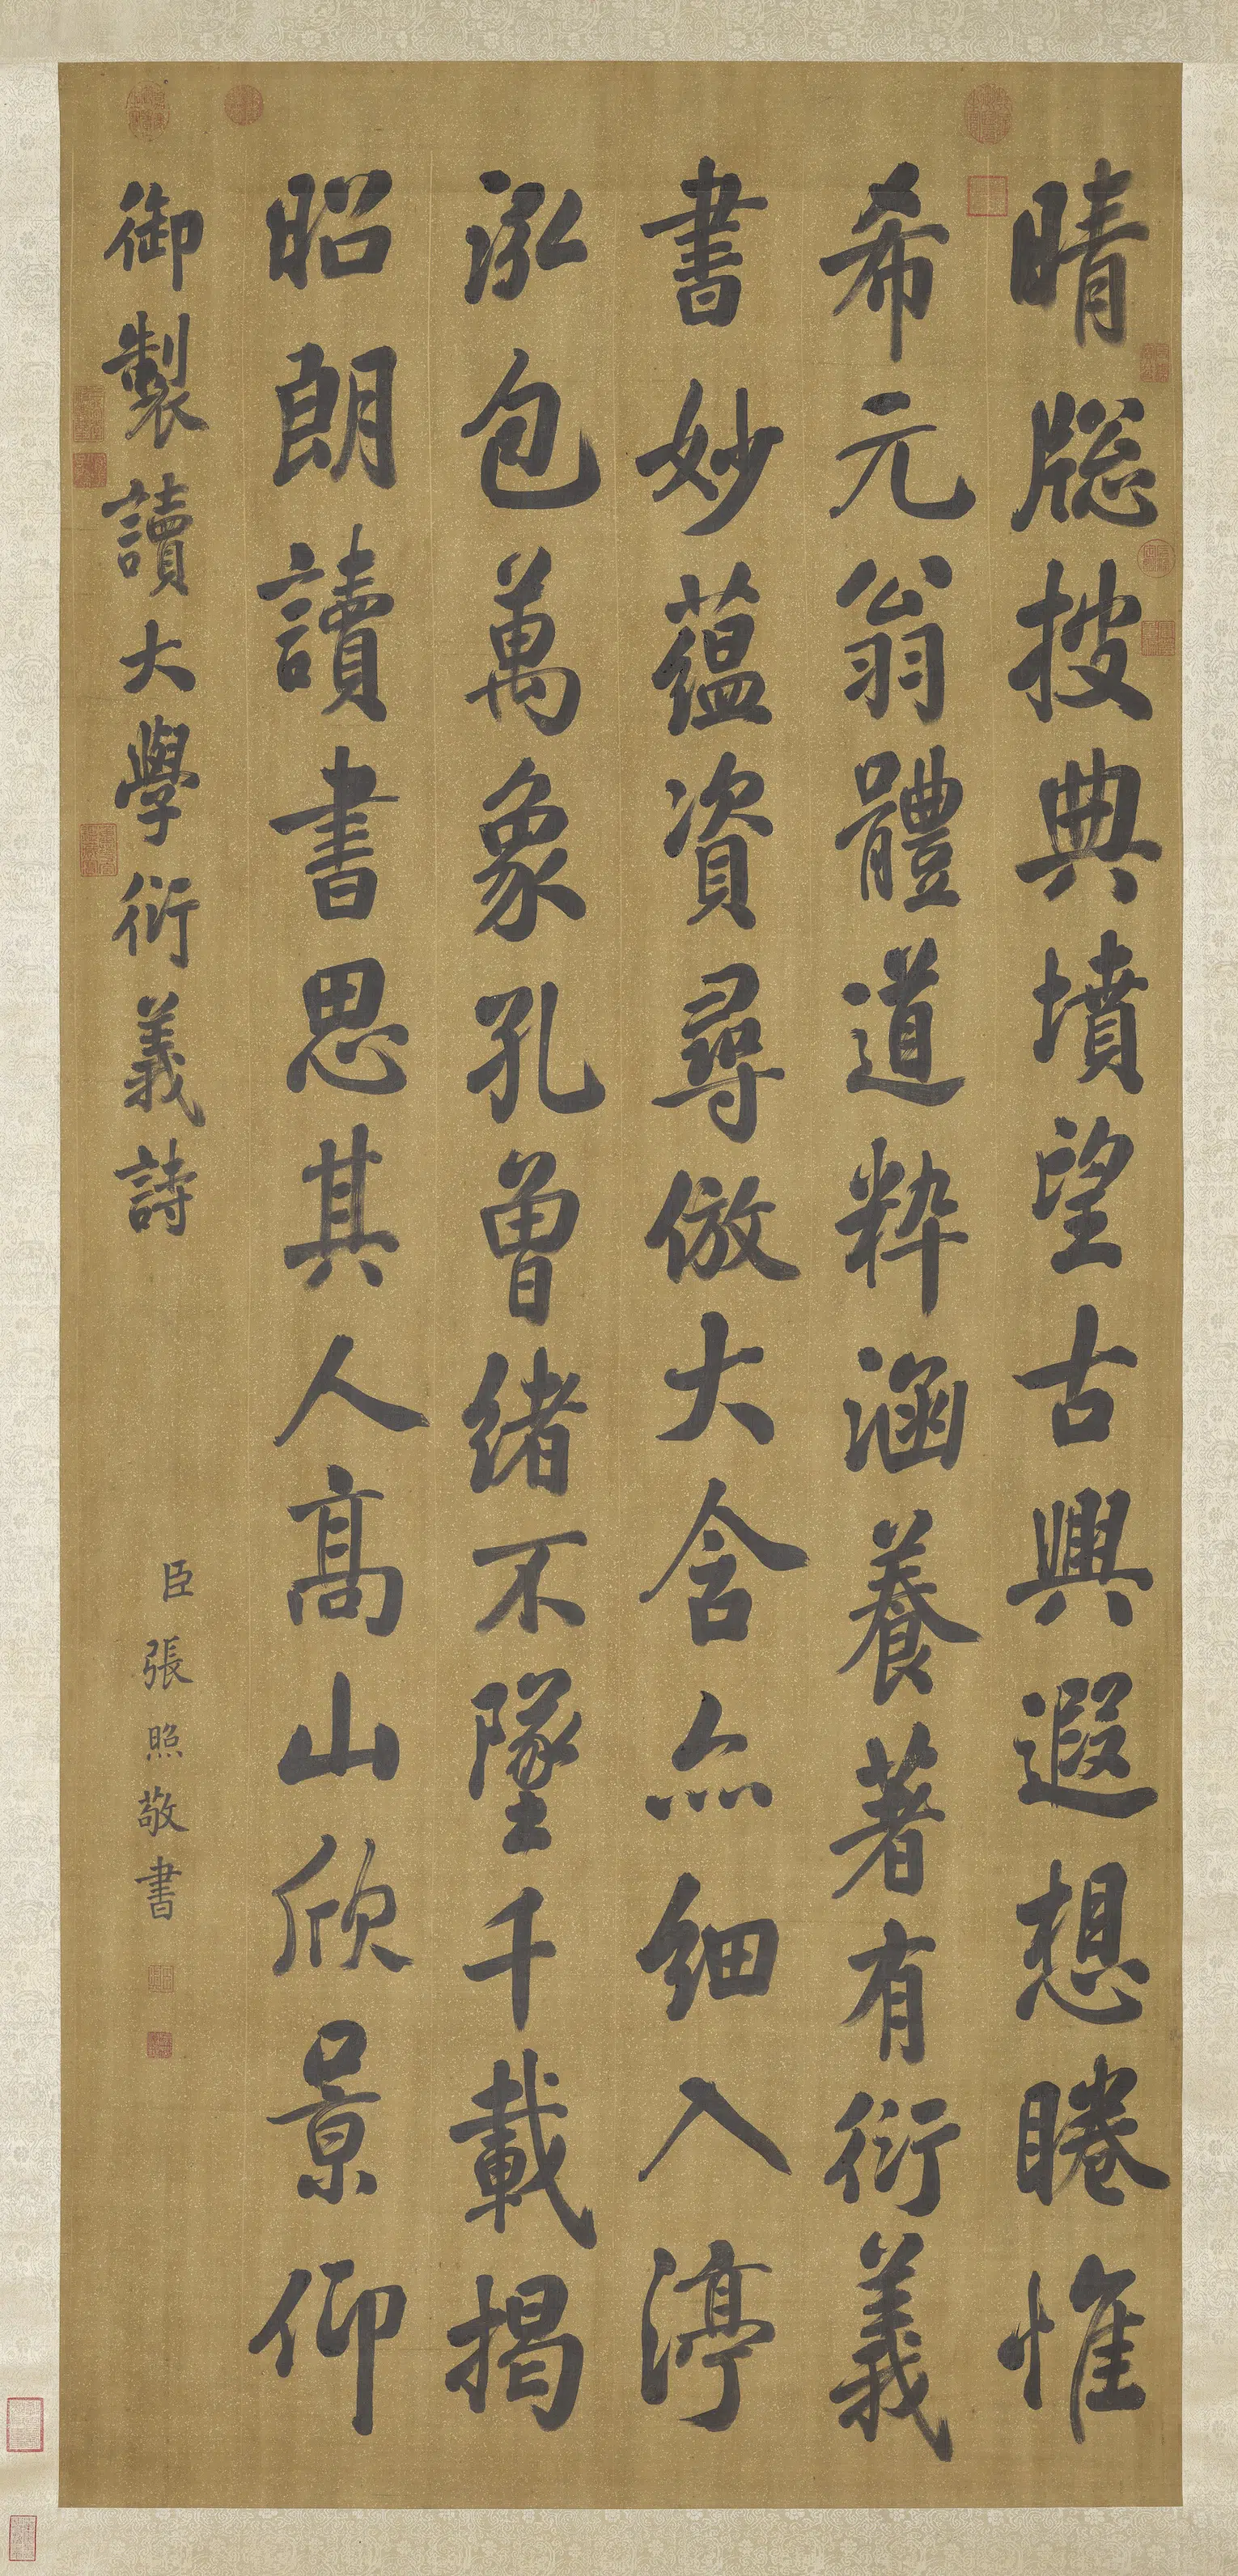 晴牎披典墳望古興遐想睠惟
希元翁體道粹涵養著有衍義
書妙蘊資尋倣大含亦細入渟
泓包萬象孔曾緒不墜千載揭
昭朗讀書思其人高山欣景仰
御製讀大學衍義詩
臣張照敬書